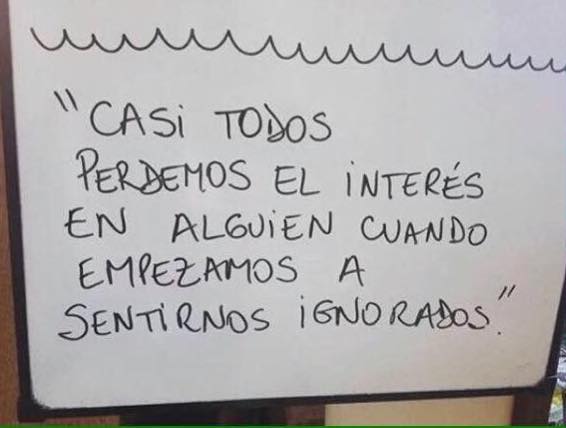 "CASi TODOS
PERDEMOS EL iNTERÉS
EN ALGUiEN CUANDO
EMPEZAMOS A
SENTiRNOS iGNORADOS."